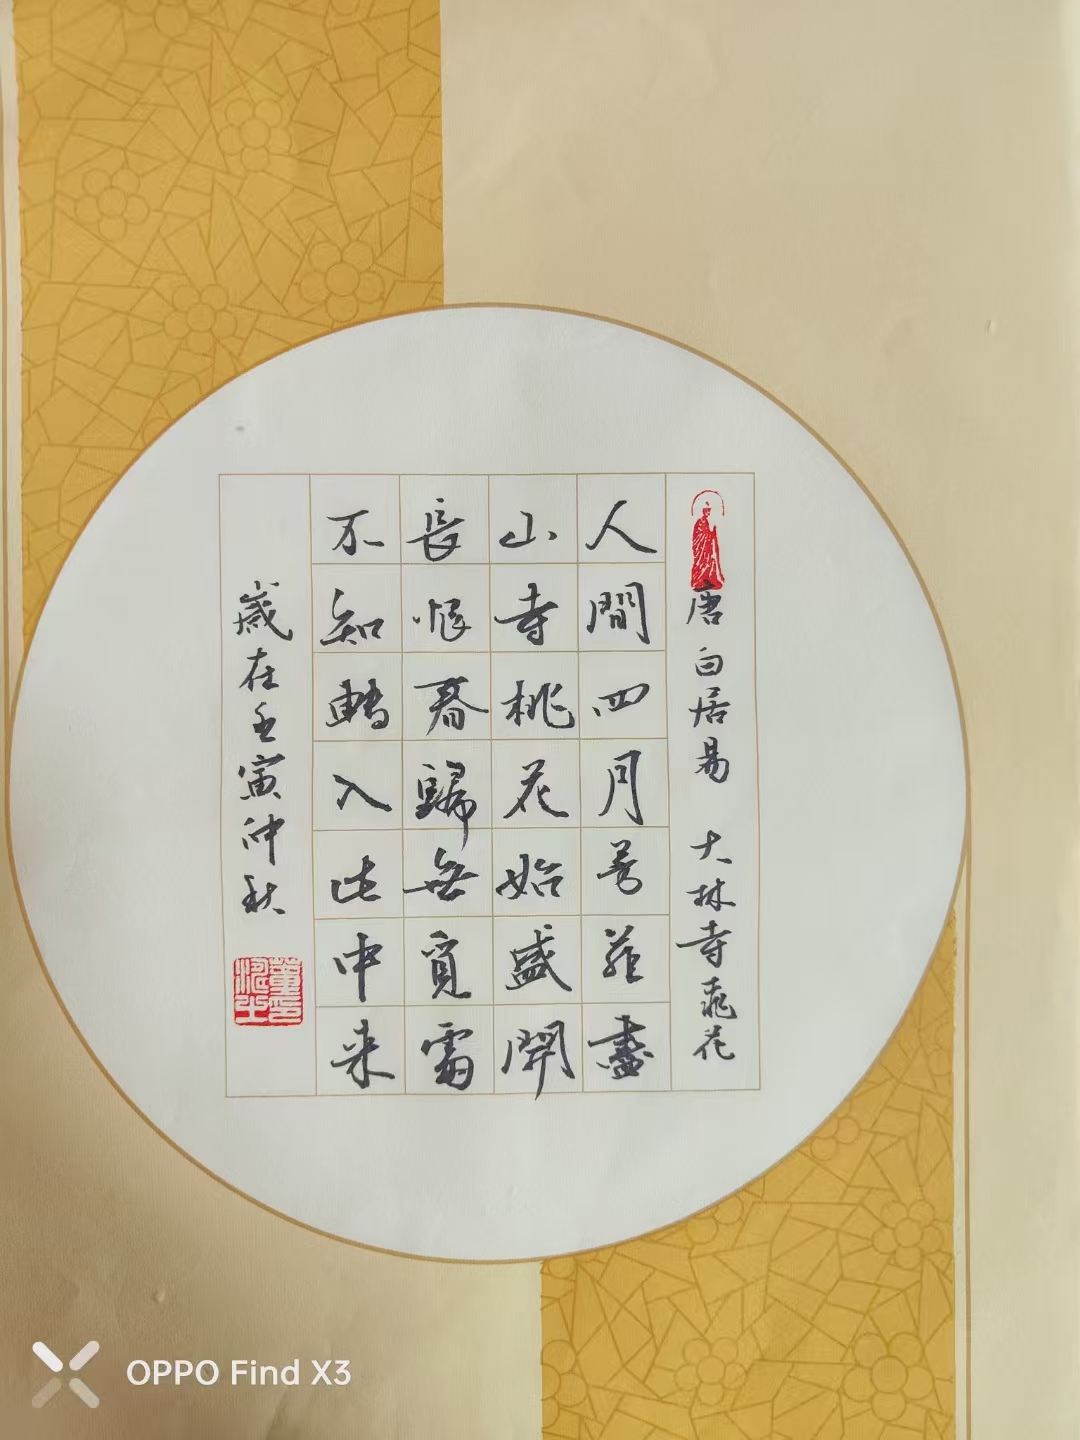 唐白居易 大林寺桃花
人間四月芳菲盡
山寺桃花始盛開
長恨春歸無覓處
不知轉入此中来
歲在壬寅仲秋
OPPO Find X3